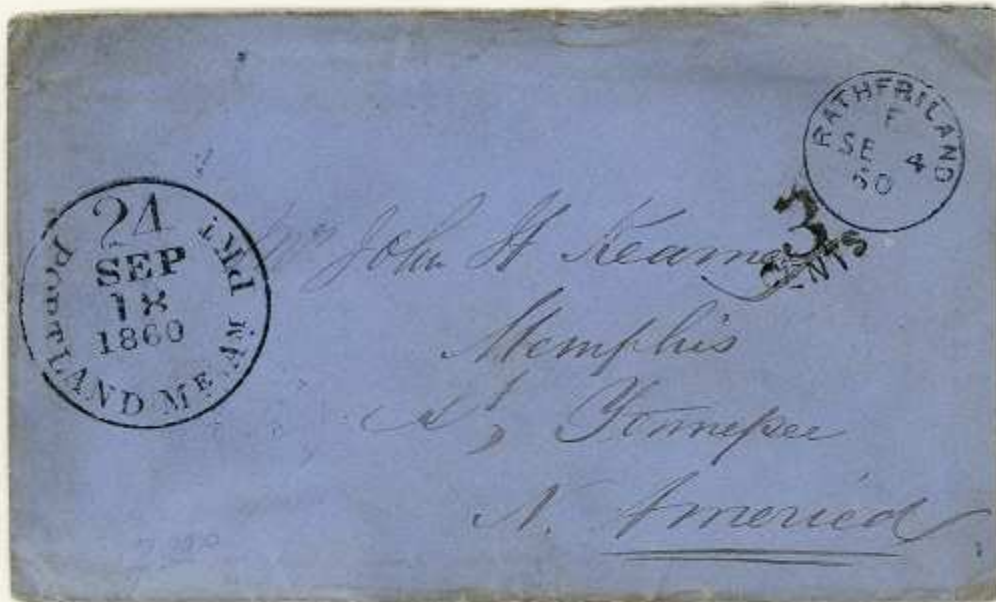 RATHFRILAND
F
SE 4
60
3
CENTS
24
SEP
18
1860
PORTLAND ME. AM. PKT
John H
Memphis
St Tennessee
N. America